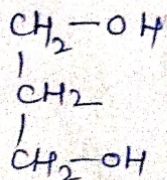 CH₂-OH
CH2
CH₂-OH